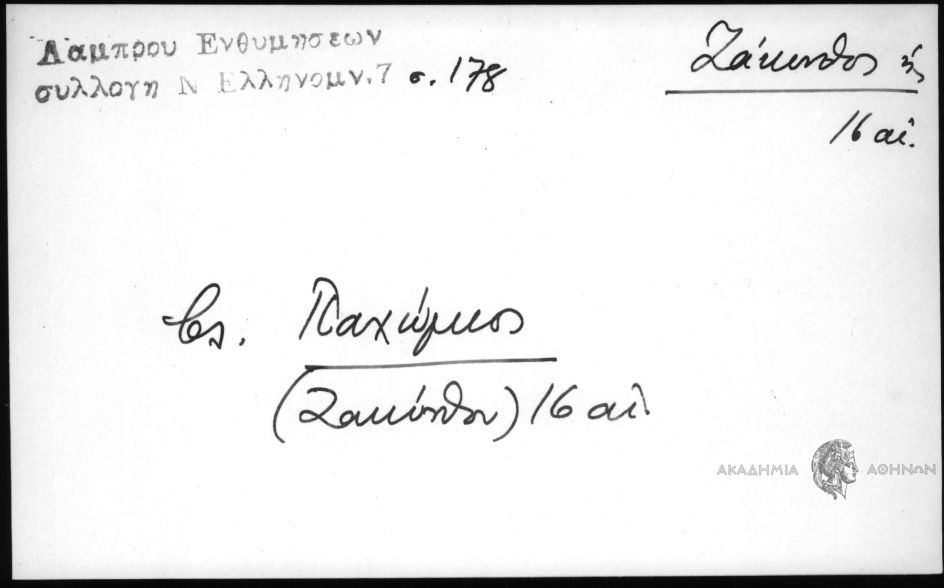 Λαμπρου Ενθυμησεων
συλλογη Ν Ελληνομν.7 σ. 178
Ζάκυνθος ἡ
16 αἰ.
βλ. Παχώμιος
(Ζακύνθου) 16 αἰ.
ΑΚΑΔΗΜΙΑ ΑΘΗΝΩΝ